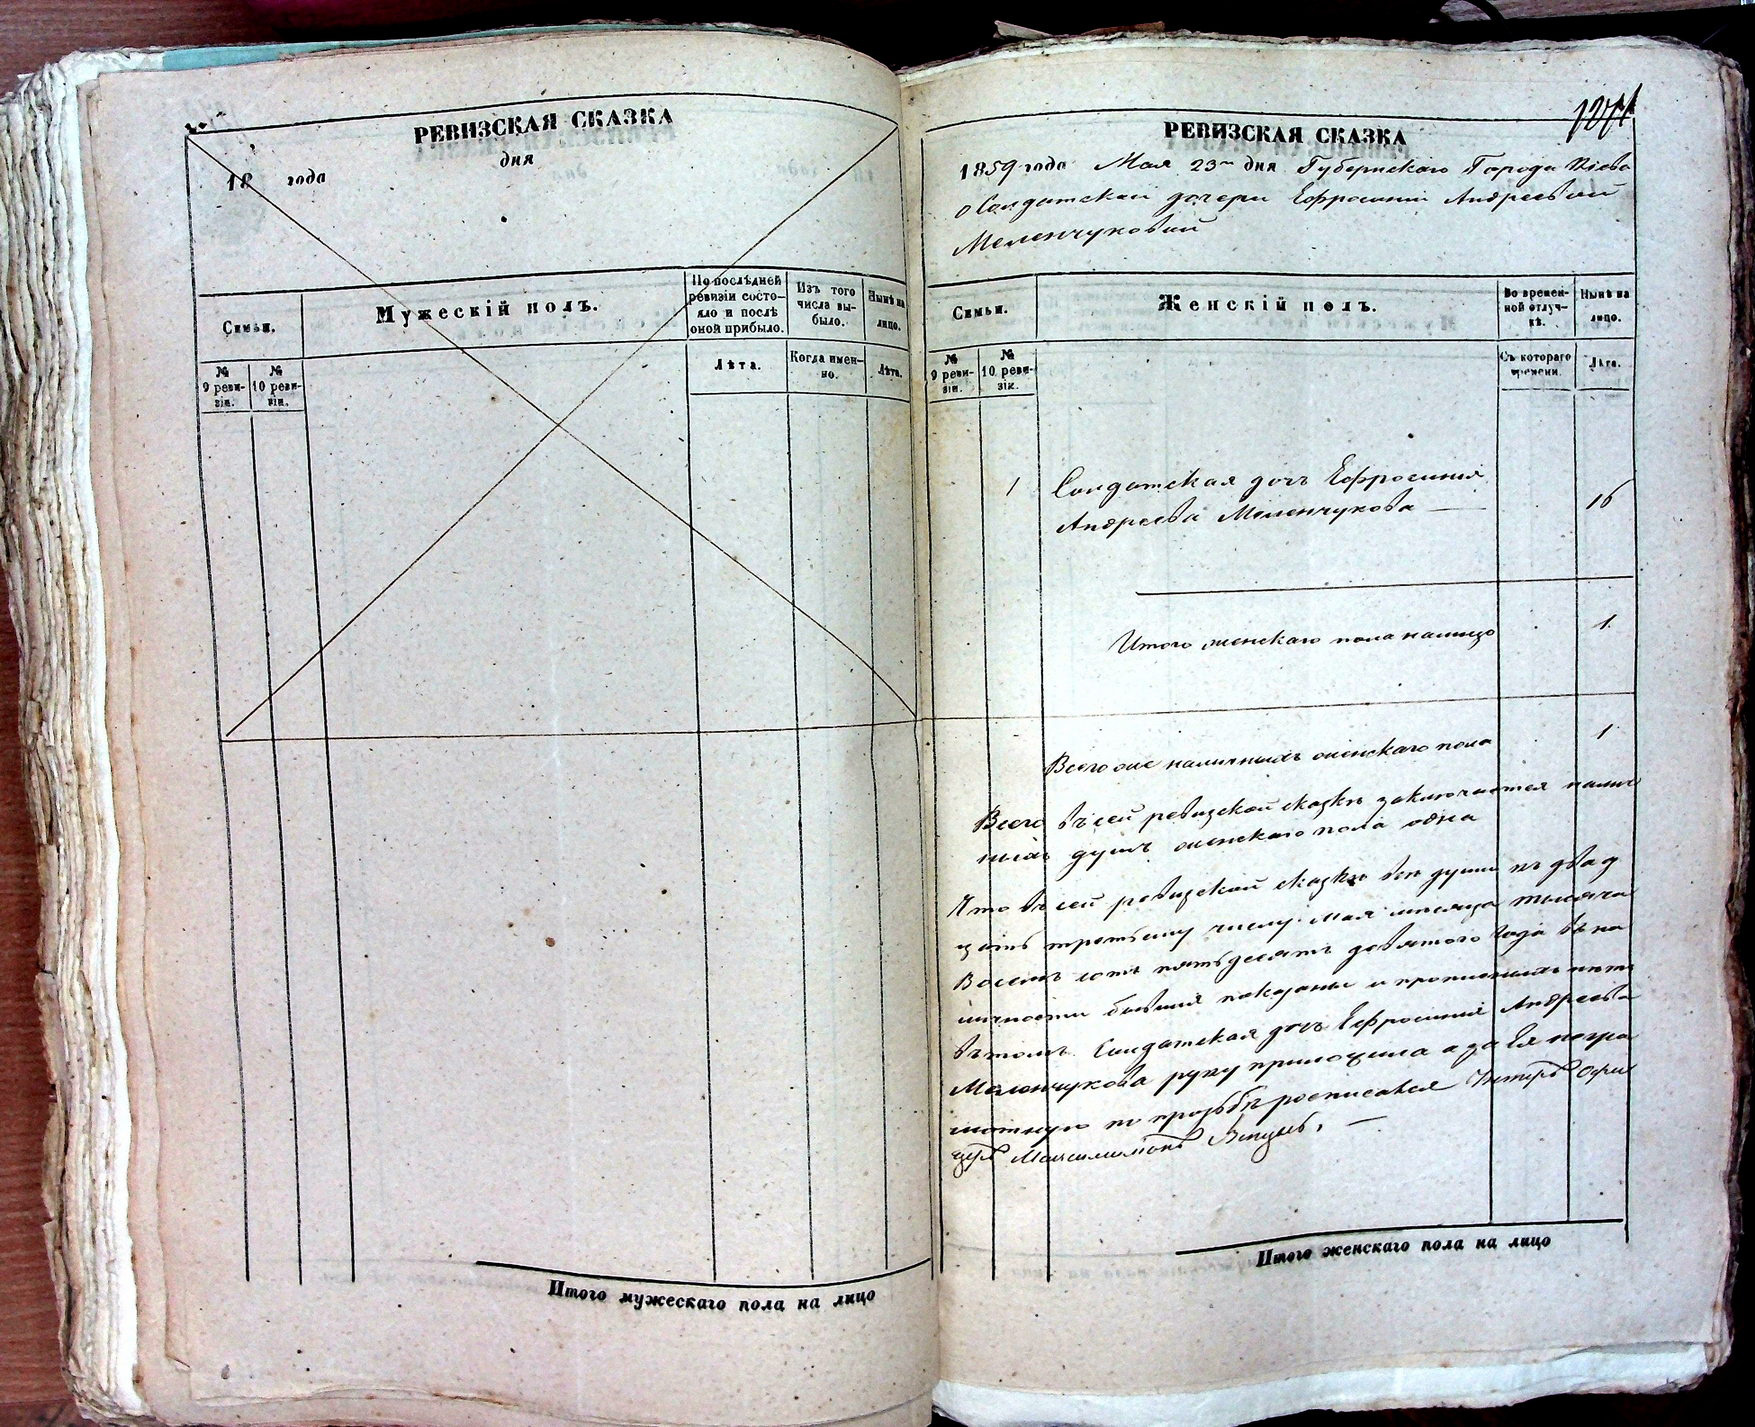 РЕВИЗСКАЯ СКАЗКА
18 года дня
Семьи.
Мужескій полъ.
По послѣдней ревизіи состояло и послѣ оной прибыло.
Изъ того числа выбыло.
Нынѣ на лицо.
№ 9 ревизіи.
№ 10 ревизіи.
Лѣта.
Когда именно.
Лѣта.
Итого мужескаго пола на лицо
1274
РЕВИЗСКАЯ СКАЗКА
1859 года Мая 23го дня Губернскаго Города Кіева
о Солдатской дочери Ефросиніи Андреевой
Меленчуковой
Семьи.
Женскій полъ.
Во временной отлучкѣ.
Нынѣ на лицо.
№ 9 ревизіи.
№ 10 ревизіи.
Съ котораго времени.
Лѣта.
1 Солдатская дочь Ефросинія
Андреева Меленчукова 16
Итого женскаго пола налицо 1
Всего же наличныхъ женскаго пола 1
Всего въ сей ревизской сказкѣ заключается налич
ныхъ душъ женскаго пола одна
Что въ сей ревизской сказкѣ всѣ души къ двад
цать третьему числу Мая мѣсяца тысяча
Восемь сотъ пятьдесятъ девятого года въ на
личности бывшія показаны и прописныхъ нѣтъ
въ томъ Солдатская дочь Ефросинія Андреева
Меленчукова руку приложила а за Ея негра
мотную по прозьбѣ росписался Унтеръ Офи
церъ
Итого женскаго пола на лицо